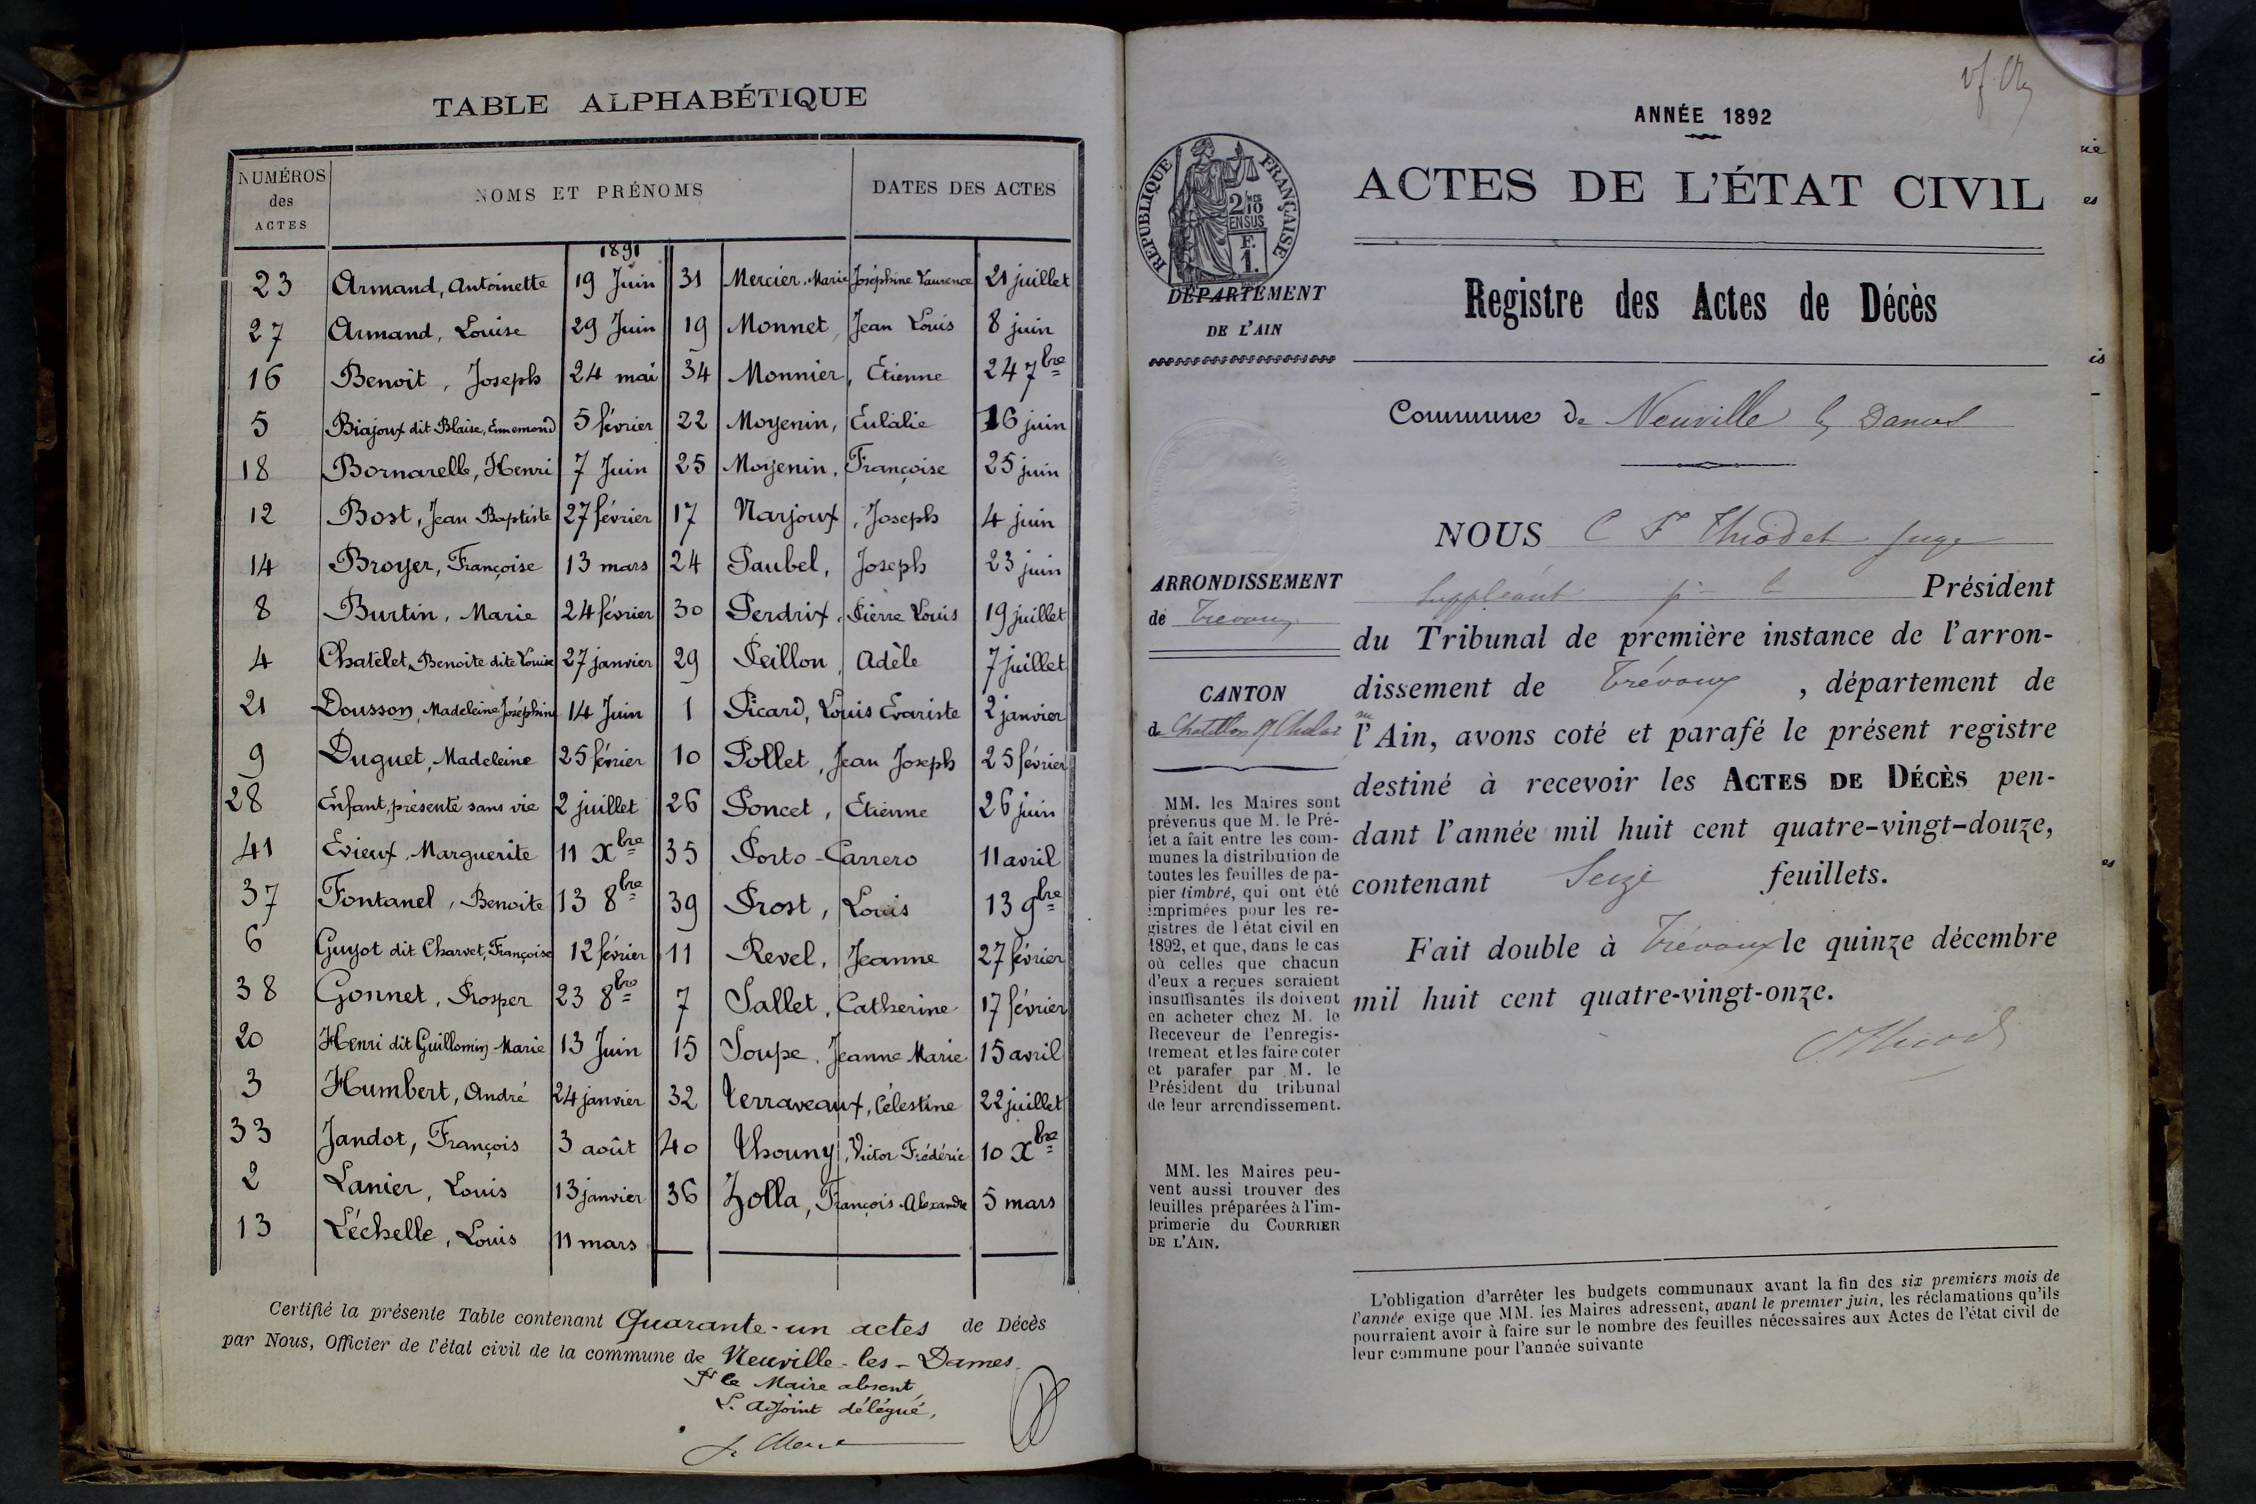 TABLE ALPHABÉTIQUE
NUMÉROS des ACTES
NOMS ET PRÉNOMS
DATES DES ACTES
1891
23 Armand, Antoinette 19 Juin
27 Armand, Louise 29 Juin
16 Benoit, Joseph 24 mai
5 Biajoux dit Blaise, Ennemond 5 février
18 Bornarelle, Henri 7 Juin
12 Bost, Jean Baptiste 27 février
14 Broyer, Françoise 13 mars
8 Burtin, Marie 24 février
4 Chatelet, Benoite dite Louise 27 janvier
21 Dousson, Madeleine Joséphine 14 Juin
9 Duguet, Madeleine 25 février
28 Enfant, présenté sans vie 2 juillet
41 Evieux, Marguerite 11 Xbre
37 Fontanel, Benoite 13 8bre
6 Guyot dit Charvet, Françoise 12 février
38 Gonnet, Prosper 23 8bre
20 Henri dit Guillomin, Marie 13 Juin
3 Humbert, André 24 janvier
33 Jandot, François 3 août
2 Lanier, Louis 13 janvier
13 Léchelle, Louis 11 mars
31 Mercier, Marie Joséphine Laurence 21 juillet
19 Monnet, Jean Louis 8 juin
34 Monnier, Etienne 24 7bre
22 Moyenin, Eulalie 16 juin
25 Moyenin, Françoise 25 juin
17 Narjoux, Joseph 4 juin
24 Paubel, Joseph 23 juin
30 Perdrix, Pierre Louis 19 juillet
29 Peillon, Adèle 7 juillet
1 Picard, Louis Evariste 2 janvier
10 Pollet, Jean Joseph 25 février
26 Poncet, Etienne 26 juin
35 Porto-Carrero 11 avril
39 Prost, Louis 13 9bre
11 Revel, Jeanne 27 février
7 Sallet, Catherine 17 février
15 Soupe, Jeanne Marie 15 avril
32 Terraveaux, Célestine 22 juillet
40 Thouny, Victor Frédéric 10 Xbre
36 Zolla, François Alexandre 5 mars
Certifié la présente Table contenant Quarante-un actes de Décès
par Nous, Officier de l'état civil de la commune de Neuville-les-Dames.
Pr le Maire absent,
L'adjoint délégué,
ANNÉE 1892
RÉPUBLIQUE FRANÇAISE
2/10
EN SUS
F.
1.
ACTES DE L'ÉTAT CIVIL
Registre des Actes de Décès
DÉPARTEMENT
DE L'AIN
Commune de Neuville les Dames
NOUS C F Thiodet Juge
Suppléant pr le Président
du Tribunal de première instance de l'arron-
dissement de Trévoux, département de
l'Ain, avons coté et parafé le présent registre
destiné à recevoir les ACTES DE DÉCÈS pen-
dant l'année mil huit cent quatre-vingt-douze,
contenant Seize feuillets.
Fait double à Trévoux le quinze décembre
mil huit cent quatre-vingt-onze.
ARRONDISSEMENT
de Trévoux
CANTON
de Chatillon s/ Chalar
MM. les Maires sont
prévenus que M. le Pré-
fet a fait entre les com-
munes la distribution de
toutes les feuilles de pa-
pier timbré, qui ont été
imprimées pour les re-
gistres de l'état civil en
1892, et que, dans le cas
où celles que chacun
d'eux a reçues seraient
insuffisantes ils doivent
en acheter chez M. le
Receveur de l'enregis-
trement et les faire coter
et parafer par M. le
Président du tribunal
de leur arrondissement.
MM. les Maires peu-
vent aussi trouver des
feuilles préparées à l'im-
primerie du COURRIER
DE L'AIN.
L'obligation d'arrêter les budgets communaux avant la fin des six premiers mois de
l'année exige que MM. les Maires adressent, avant le premier juin, les réclamations qu'ils
pourraient avoir à faire sur le nombre des feuilles nécessaires aux Actes de l'état civil de
leur commune pour l'année suivante